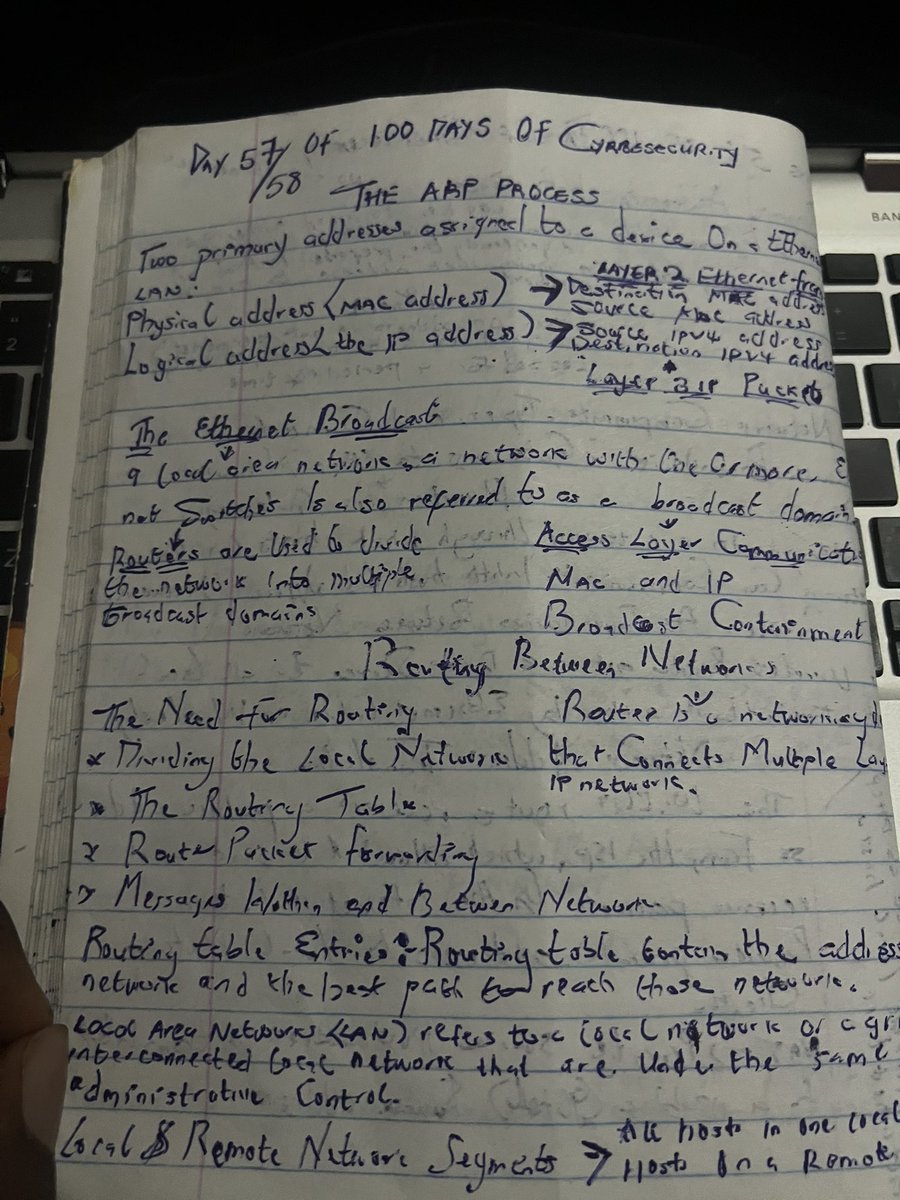 DAY 57/58 OF 100 DAYS OF CYBERSECURITY
THE ARP PROCESS
Two primary addresses assigned to a device On a Ethern
LAN:
Physical address (MAC address) → LAYER 2 Ethernet fra
Destination MAC addres
Source MAC address
Logical address (the IP address) → Source IPV4 address
Destination IPV4 addre
Layer 3 IP Packet
The Ethernet Broadcast
a local area network, a network with One Or more, E
net Switches Is also referred to as a broadcast domain.
Routers are Used to divide
the network Into multiple
broadcast domains
Access Layer Communicat
MAC and IP
Broadcast Containment
Routing Between Networks
The Need for Routing
* Dividing the Local Network
* The Routing Table
* Router Packet forwarding
> Messages Within and Between Network
Router Is a networking d
that Connects Multiple Lay
IP network.
Routing table Entries: Routing table Contain the address
network and the best path to reach those network.
Local Area Networks (LAN) refers to a local network or a gr
interconnected local network that are Under the same
administrative Control.
Local & Remote Network Segments → All hosts in one local
Hosts On a Remote
BAN
2